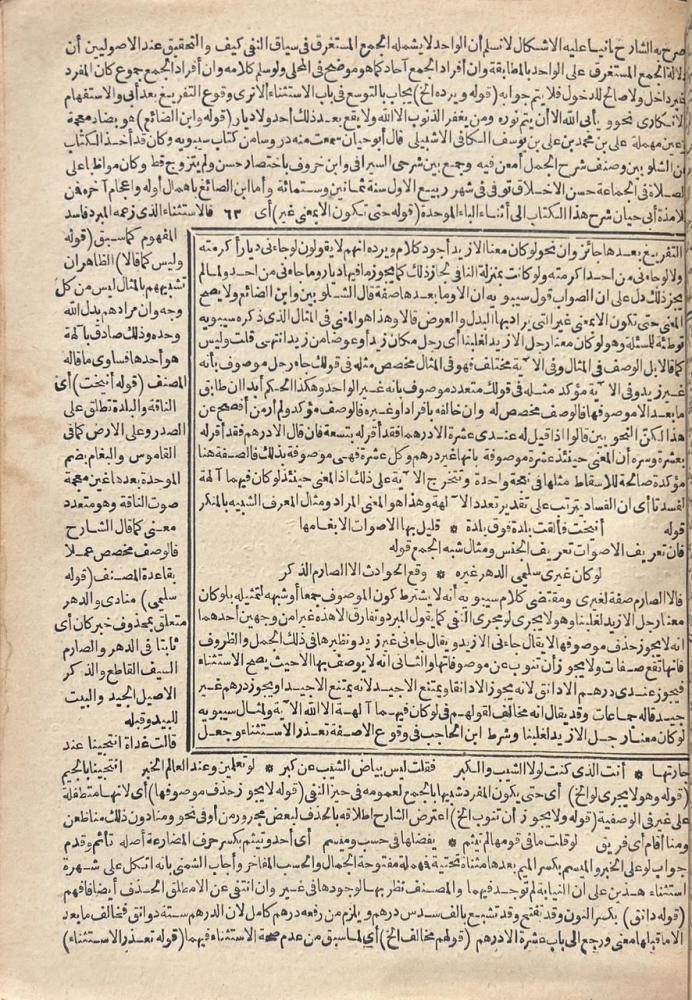 صرح به الشارح ثانيا عليه الاشكال لانسلم أن الواحد لا يشمله الجمع المستغرق في سياق النفي كيف والتحقيق عند الاصوليين أن
دلالة الجمع المستغرق على الواحد بالمطابقة وان أفراد الجمع آحاد كما هو موضح في المحلى ولوسلم كلامه وان أفراد الجمع جموع كان المفرد
غير داخل ولا صالح للدخول فلا يتم جوابه (قوله ويرده الخ) يجاب بالتوسع في باب الاستثناء ألا ترى وقوع التفريغ بعد أبى والاستفهام
الانكارى نحو و يأبى الله الا أن يتم نوره ومن يغفر الذنوب الا الله ولا يقع بعد ذلك أحد ولا ديار (قوله وابن الضائع) هو بضاد معجمة
وعين مهملة على بن محمد بن على بن يوسف الكافى الاشبيلى قال أبو حيان سمعت منه دروسا من كتاب سيبويه وكان قد أخذ الكتاب
عن الشلوبين وصنف شرح الجمل أمعن فيه وجمع بين شرحى السيرافى وابن خروف باختصار حسن ولم يتزوج قط وكان مواظبا على
الصلاة فى الجماعة حسن الاخلاق توفى فى شهر ربيع الاول سنة ثمانين وستمائة وأما ابن الصائغ باهمال أوله واعجام آخره فن
تلامذة أبى حيان شرح هذا الكتاب الى أثناء الباء الموحدة (قوله حتى تكون الابمعنى غير) أى ٦٣ فالاستثناء الذى زعمه المبرد فاسد
التفريغ بعدها جائز وان نحو لو كان معنا الا زيد أجود كلام ويرده انهم لا يقولون لو جاءنى ديار أكرمته
ولا لو جاءنى من أحد أكرمته ولو كانت بمنزلة النافى لجاز ذلك كما يجوز ما فيها ديار وما جاءنى من أحد ولما لم
يجز ذلك دل على ان الصواب قول سيبويه ان الا وما بعدها صفة قال الشلوبين وابن الضائع ولا يصح
المعنى حتى تكون الابمعنى غير التى يراد بها البدل والعوض قالا وهذا هو المعنى فى المثال الذى ذكره سيبويه
توطئة للمسئلة وهو لو كان معنا رجل الا زيد لغلبنا أى رجل مكان زيد أو عوضا من زيد انتهى قلت وليس
كما قالا بل الوصف فى المثال وفى الآية مختلف فهو فى المثال مخصص مثله فى قولك جاء رجل موصوف بأنه
غير زيد وفى الآية مؤكد مثله فى قولك متعدد موصوف بانه غير الواحد وهكذا الحكم أبدا ان طابق
ما بعد الا موصوفها فالوصف مخصص له وان خالفه بافراد أو غيره فالوصف مؤكد ولم أر من أفصح عن
هذا لكن النحويين قالوا اذا قيل له عندى عشرة الا درهما فقد أقر له بتسعة فان قال الا درهم فقد أقر له
بعشرة وسره أن المعنى حينئذ عشرة موصوفة بانها غير درهم وكل عشرة فهى موصوفة بذلك فالصفة هنا
مؤكدة صالحة للاسقاط مثلها فى نفخة واحدة وتتخرج الآية على ذلك اذ المعنى حينئذ لو كان فيهما آلهة
لفسدتا أى ان الفساد يترتب على تقدير تعدد الآلهة وهذا هو المعنى المراد ومثال المعرف الشبيه بالمنكر
قوله أنيخت فألقت بلدة فوق بلدة * قليل بها الاصوات الا بغامها
فان تعريف الاصوات تعريف الجنس ومثال شبه الجمع قوله
لو كان غيرى سليمى الدهر غيره * وقع الحوادث الا الصارم الذكر
فالا الصارم صفة لغيرى ومقتضى كلام سيبويه أنه لا يشترط كون الموصوف جمعا أو شبهه لتمثيله بلو كان
معنا رجل الا زيد لغلبنا وهو لا يجرى لو مجرى النفى كما يقول المبرد وتفارق الا هذه غيرا من وجهين أحدهما
انه لا يجوز حذف موصوفها لا يقال جاءنى الا زيد ويقال جاءنى غير زيد ونظيرها فى ذلك الجمل والظروف
فانها تقع صفات ولا يجوز أن تنوب عن موصوفاتها والثانى انه لا يوصف بها الا حيث يصح الاستثناء
فيجوز عندى درهم الا دانق لانه يجوز الا دانقا ويمتنع الا جيد لانه يمتنع الا جيدا ويجوز درهم غير
جيد قاله جماعات وقد يقال انه مخالف لقولهم فى لو كان فيهما آلهة الا الله الآية ولمثال سيبويه
لو كان معنا رجل الا زيد لغلبنا وشرط ابن الحاجب فى وقوع الا صفة تعذر الاستثناء وجعل
المفهوم كما سبق (قوله
وليس كما قالا) الظاهر ان
تشبيههم بالمثال ليس من كل
وجه وان مرادهم بدل الله
وحده وذلك صادق با لهة
هو أحدها فساوى ما قاله
المصنف (قوله أنيخت) أى
الناقة والبلدة تطلق على
الصدر وعلى الارض كما فى
القاموس والبغام بضم
الموحدة بعدها غين معجمة
صوت الناقة وهو متعدد
معنى كما قال الشارح
فالوصف مخصص عملا
بقاعدة المصنف (قوله
سليمى) منادى والدهر
متعلق بمحذوف خبر كان أى
ثابتا فى الدهر والصارم
السيف القاطع والذكر
الاصيل الجيد والبيت
للبيد وقبله
قالت غداة انتجينا عند
جارتها * أنت الذى كنت لولا الشيب والكبر * فقلت ليس بياض الشيب عن كبر * لو تعلمين وعند العالم الخبر انتجينا بالجيم
(قوله وهو لا يجرى لو الخ) أى حتى يكون المفرد شبيها بالجمع لعمومه فى حيز النفى (قوله لا يجوز حذف موصوفها) أى لانها متطفلة
على غير فى الوصفية (قوله ولا يجوز أن تنوب الخ) اعترض الشارح اطلاقه بالحذف لبعض مجرور من أو فى نحو ومنا دون ذلك منا ظعن
ومنا أقام أى فريق لو قلت ما فى قومها لم تيثم * يفضلها فى حسب وميسم أى أحد وتيثم بكسر حرف المضارعة أصله تأثم وقدم
جواب لو على الخبر والميسم بكسر الميم بعدها مثناة تحتية فهملة مفتوحة الجمال والحسب المفاخر وأجاب الشمنى بانه اتكل على شهرة
استثناء هذين على ان النيابة لم توجد فيهما والمصنف نظر بها لوجودها فى غير وان انتفى عن الا مطلق الحذف أيضا فافهم
(قوله دانق) بكسر النون وقد تفتح وقد تشبع بالف سدس درهم ويلزم من رفعه درهم كامل لان الدرهم ستة دوانق فخالف ما بعد
الا ما قبلها معنى ورجع الى باب عشرة الا درهم (قولهم مخالف الخ) أى لما سبق من عدم صحة الاستثناء فيهما (قوله تعذر الاستثناء)